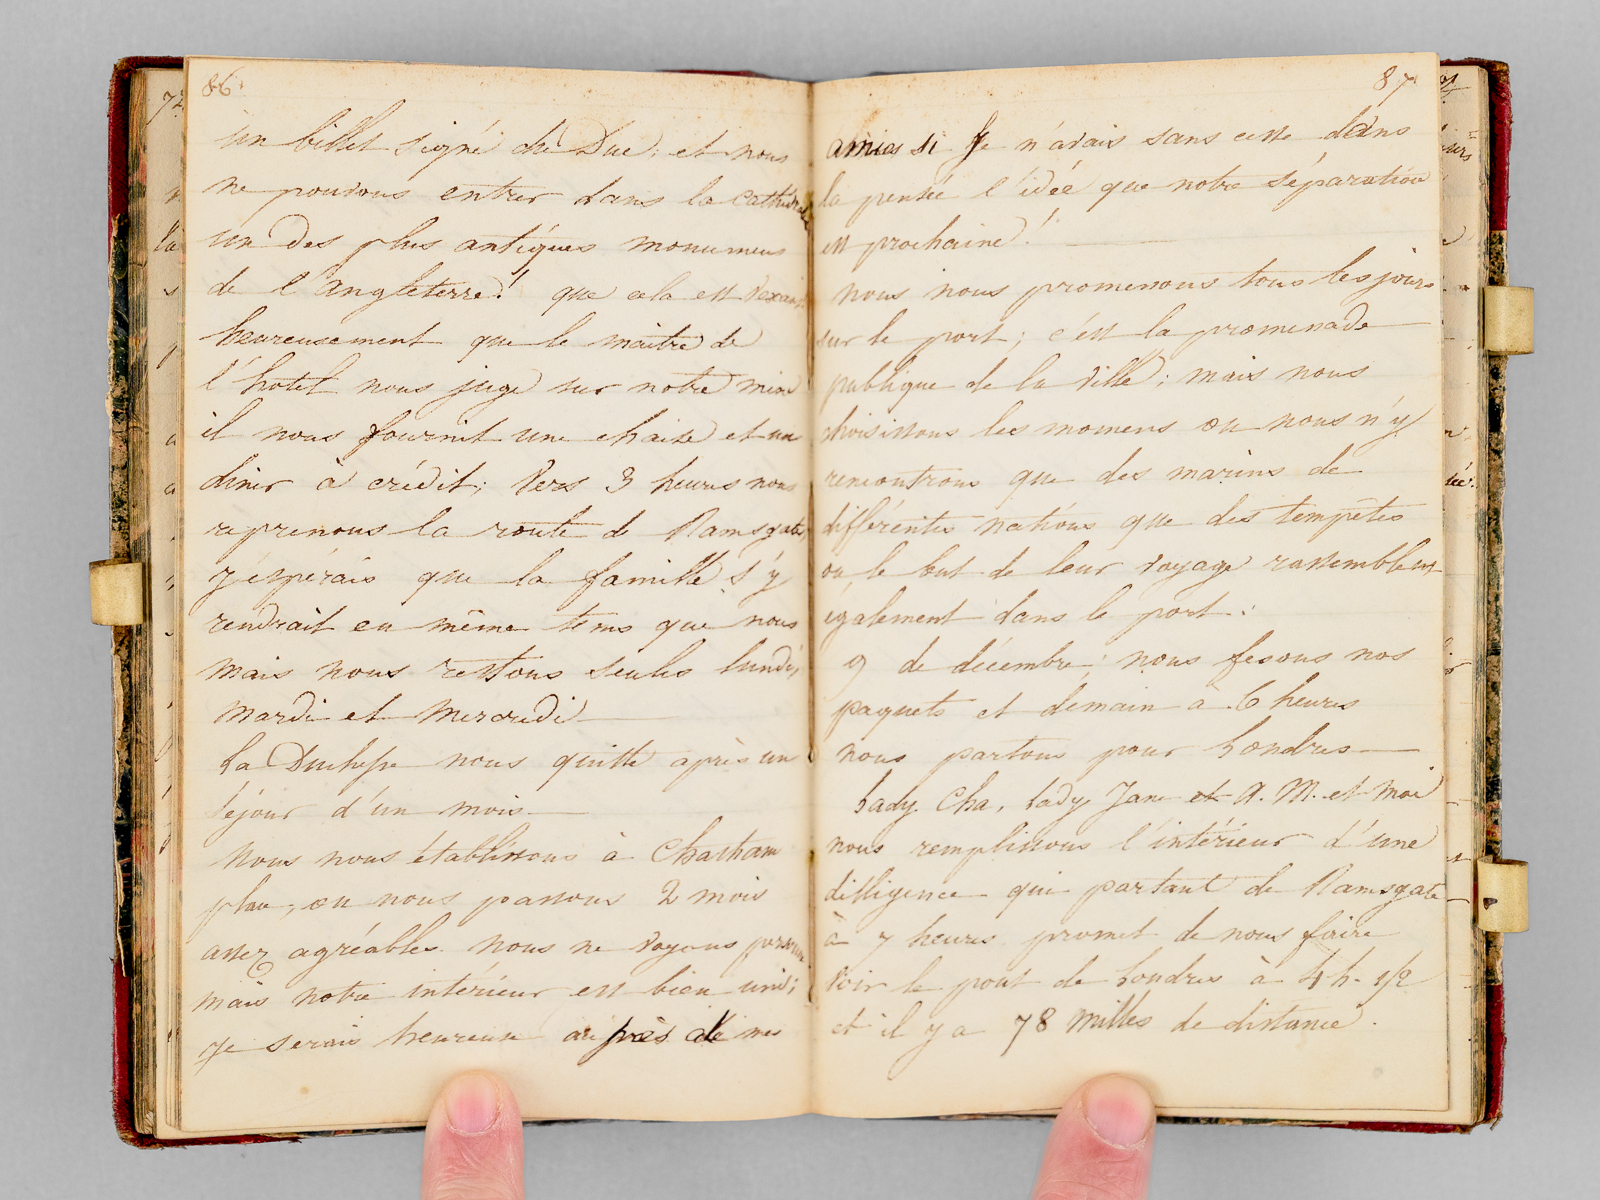 86.
un billet signé du Duc; et nous
ne pouvons entrer dans la cathédrale
un des plus antiques monumens
de l'angleterre! que cela est vexant
heureusement que le maitre de
l'hotel nous juge sur notre mine
il nous fournit une chaise et un
diner à crédit; Vers 3 heures nous
reprenons la route de Ramsgate,
j'éspérais que la famille s'y
rendrait en même tems que nous
mais nous restons seules lundi,
mardi et mercredi
La Duchesse nous quitte après un
séjour d'un mois
Nous nous établissons à Chatham
place, ou nous passons 2 mois
assez agréables nous ne voyons personne
mais notre intérieur est bien uni;
je serais heureuse auprès de mes
87
amies si Je n'avais sans cesse dans
la pensée l'idée que notre séparation
est prochaine!
nous nous promenons tous les jours
sur le port; c'est la promenade
publique de la ville; mais nous
choisissons les momens ou nous n'y
rencontrons que des marins de
différentes nations que des tempêtes
ou le but de leur voyage rassemblent
également dans le port.
9 de décembre; nous fesons nos
paquets et demain à 6 heures
nous partons pour Londres
Lady Cha, Lady Jane et A. M. et moi
nous remplissons l'intérieur d'une
dilligence qui partant de Ramsgate
à 7 heures promet de nous faire
voir le pont de Londres à 4 h. 1/2
et il y a 78 milles de distance.